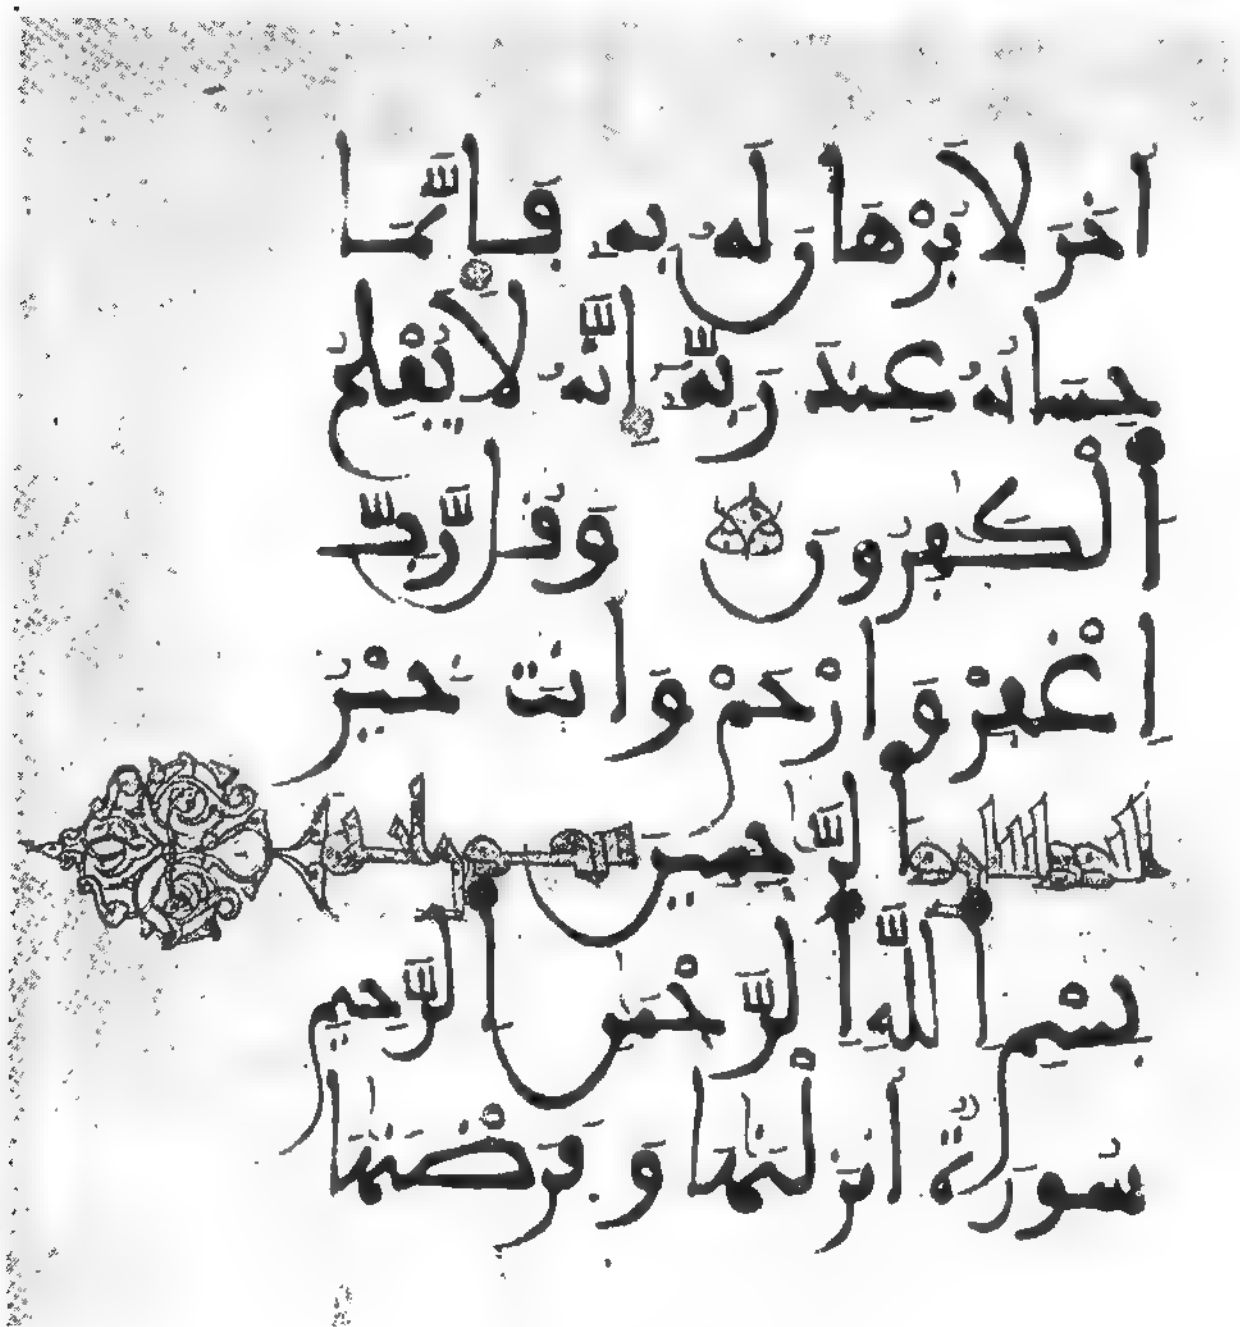 اخَرَ لَا بُرْهَٰنَ لَهُۥ بِهِۦ فَإِنَّمَا
حِسَابُهُۥ عِندَ رَبِّهِۦٓ إِنَّهُۥ لَا يُفْلِحُ
اَلْكَٰفِرُونَ وَقُل رَّبِّ
اِغْفِرْ وَارْحَمْ وَأَنتَ خَيْرُ
اَلرَّٰحِمِينَ
بِسْمِ اِللَّهِ اِلرَّحْمَٰنِ اِلرَّحِيمِ
سُورَةٌ أَنزَلْنَٰهَا وَفَرَضْنَٰهَا